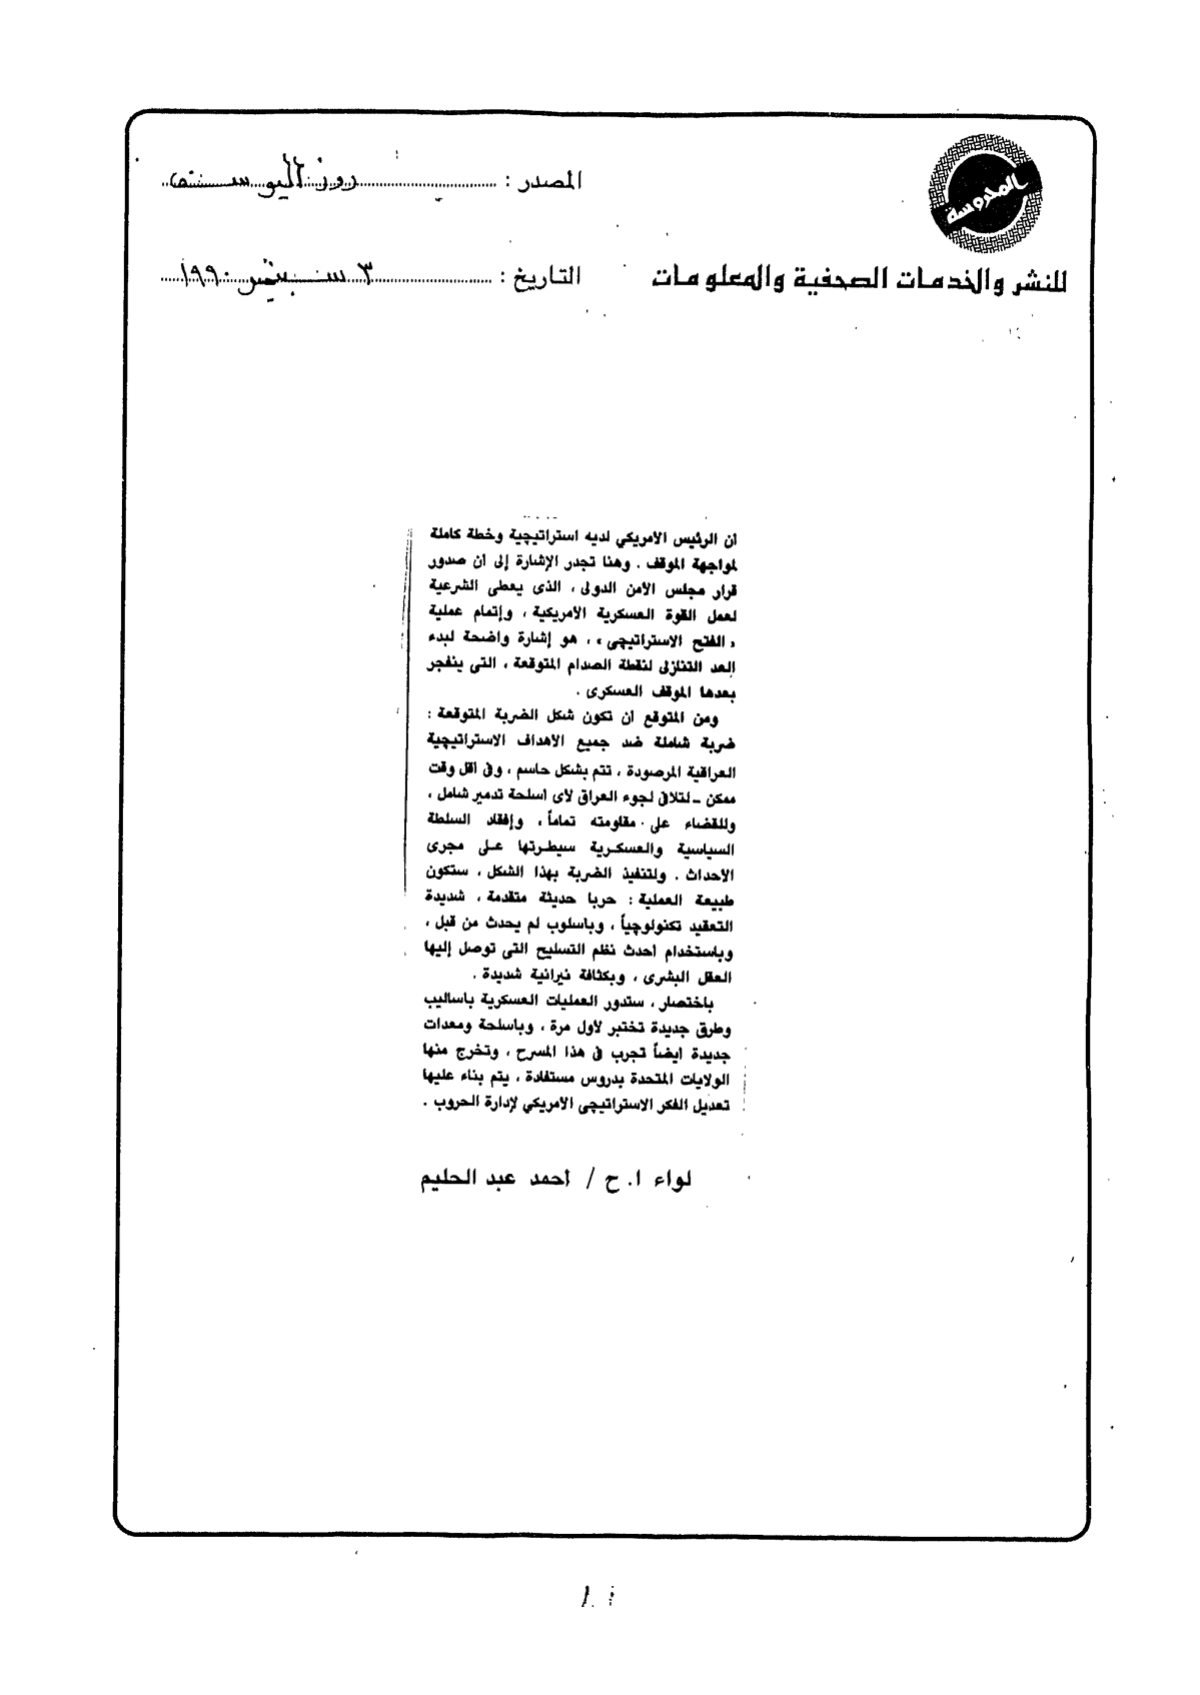 المحروسة
للنشر والخدمات الصحفية والمعلومات
المصدر : روز اليوسف
التاريخ : ٣ سبتمبر ١٩٩٠
ان الرئيس الأمريكي لديه استراتيجية وخطة كاملة
لمواجهة الموقف . وهنا تجدر الإشارة إلى أن صدور
قرار مجلس الأمن الدولى ، الذى يعطى الشرعية
لعمل القوة العسكرية الأمريكية ، وإتمام عملية
« الفتح الاستراتيجى » ، هو إشارة واضحة لبدء
العد التنازلى لنقطة الصدام المتوقعة ، التى ينفجر
بعدها الموقف العسكرى .
ومن المتوقع أن تكون شكل الضربة المتوقعة :
ضربة شاملة ضد جميع الأهداف الاستراتيجية
العراقية المرصودة ، تتم بشكل حاسم ، وفى أقل وقت
ممكن ــ لتلافى لجوء العراق لأى أسلحة تدمير شامل ،
وللقضاء على مقاومته تماماً ، وإفقاد السلطة
السياسية والعسكرية سيطرتها على مجرى
الأحداث . ولتنفيذ الضربة بهذا الشكل ، ستكون
طبيعة العملية : حربا حديثة متقدمة ، شديدة
التعقيد تكنولوجياً ، وبأسلوب لم يحدث من قبل ،
وباستخدام أحدث نظم التسليح التى توصل إليها
العقل البشرى ، وبكثافة نيرانية شديدة .
باختصار ، ستدور العمليات العسكرية بأساليب
وطرق جديدة تختبر لأول مرة ، وبأسلحة ومعدات
جديدة أيضاً تجرب فى هذا المسرح ، وتخرج منها
الولايات المتحدة بدروس مستفادة ، يتم بناء عليها
تعديل الفكر الاستراتيجى الأمريكي لإدارة الحروب .
لواء ا. ح / أحمد عبد الحليم